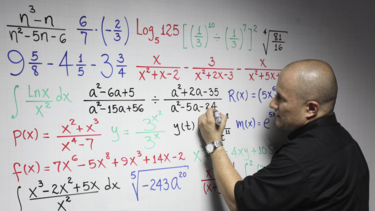 n³-n / n²-5n-6  6/7 · (-2/3)  Log₅125  [(1/3)¹⁰ ÷ (1/3)⁷]²  ⁴√(81/16)
9 5/8 - 4 1/5 - 3 3/4  x / x²+x-2 - 3 / x²+2x-3 - x / x²+5x+
∫ Lnx / x² dx  a²-6a+5 / a²-15a+56 ÷ a²+2a-35 / a²-5a-24  R(x)=(5x⁶
p(x)= x²+x³ / x⁴-7  y= 3ˣ² / 3ˣ  y(t)  m(x)=e⁵
f(x)=7x⁶-5x⁸+9x³+14x-2
∫ x³-2x²+5x / x² dx  ⁵√-243a²⁰